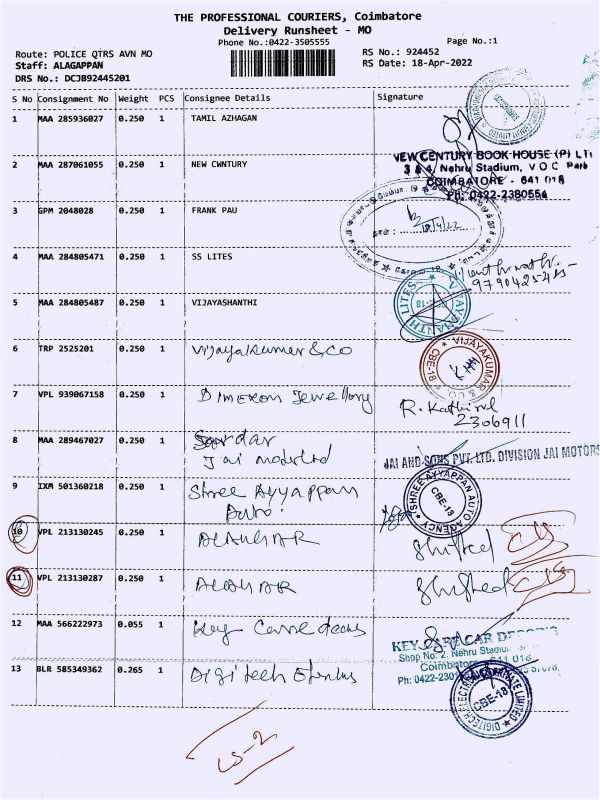 THE PROFESSIONAL COURIERS, Coimbatore
Delivery Runsheet - MO
Phone No.:0422-3505555
Page No.:1
Route: POLICE QTRS AVN MO
RS No.: 924452
Staff: ALAGAPPAN
RS Date: 18-Apr-2022
DRS No.: DCJB92445201
S No Consignment No Weight PCS Consignee Details Signature
1 MAA 285936027 0.250 1 TAMIL AZHAGAN
2 MAA 287061055 0.250 1 NEW CWNTURY
NEW CENTURY BOOK HOUSE (P) LT
3 & 4, Nehru Stadium, V O C Park
COIMBATORE - 641 018
Ph: 0422-2380554
3 GPM 2048028 0.250 1 FRANK PAU
18/4/22
4 MAA 284805471 0.250 1 SS LITES
5 MAA 284805487 0.250 1 VIJAYASHANTHI
VIJAYSHANTHI LITES
CBE-18
6 TRP 2525201 0.250 1 Vijayakumar & co
VIJAYAKUMAR & CO
CBE-18
7 VPL 939067158 0.250 1 Jewellory
R. Kathirvel
2306911
8 MAA 289467027 0.250 1 Sardar
Jai
JAI AND SONS PVT. LTD. DIVISION JAI MOTORS
9 IXM 501360218 0.250 1 Shree Ayyappan
Auto
SHREE AYYAPPAN AUTO AGENCY
CBE-18
10 VPL 213130245 0.250 1 Shifted
11 VPL 213130287 0.250 1 Shifted
12 MAA 566222973 0.055 1 Key
KEY CAR
Shop No: 2, Nehru Stadium
Coimbatore 641 018
Ph: 0422-230
13 BLR 585349362 0.265 1 Digitech
DIGITECH PRIVATE LIMITED
CBE-18